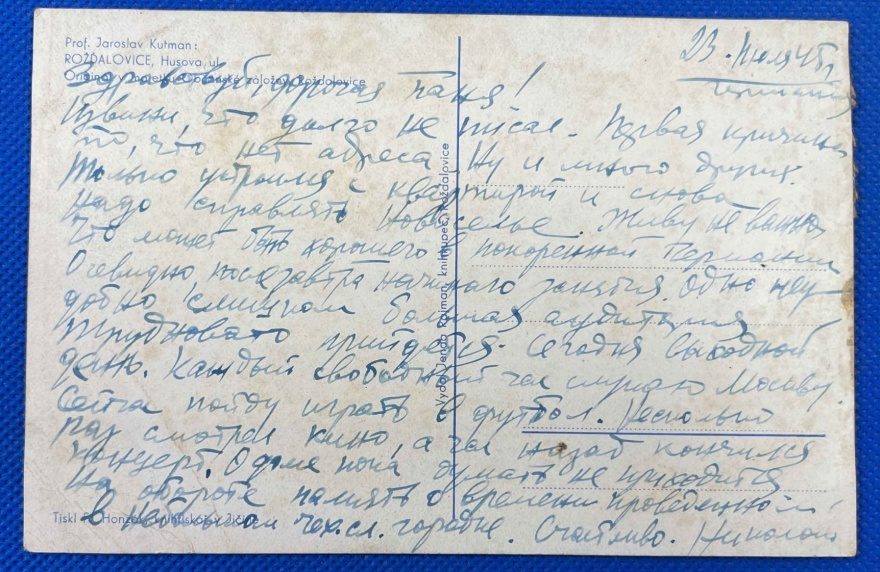 Prof. Jaroslav Kutman:
ROŽĎALOVICE, Husova ul.
Originál v majetku Občanské záložny Rožďalovice
23. Июля 45 г.
Германия
Здравствуй, дорогая Таня!
Извини, что долго не писал. Первая причина
то, что нет адреса. Ну и много других.
Только устроился с квартирой и снова
надо справлять новоселье. Живу не важно
Что может быть хорошего в покоренной Германии
Очевидно, послезавтра начинаю занятия. Одно неу-
добно, слишком большая аудитория
Трудновато прийдется. Сегодня выходной
день. Каждый свободный час слушаю Москву.
Сейчас пойду играть в футбол. Несколько
раз смотрел кино, а час назад кончился
концерт. О доме пока думать не приходится
На обороте память о времени проведенном
в небольшом чех.сл. городке. Счастливо. Николай
Vydal Jenda Rajman, knihkupec, Rožďalovice
Tiskl F. Honzák, knihtiskař v Jičíně